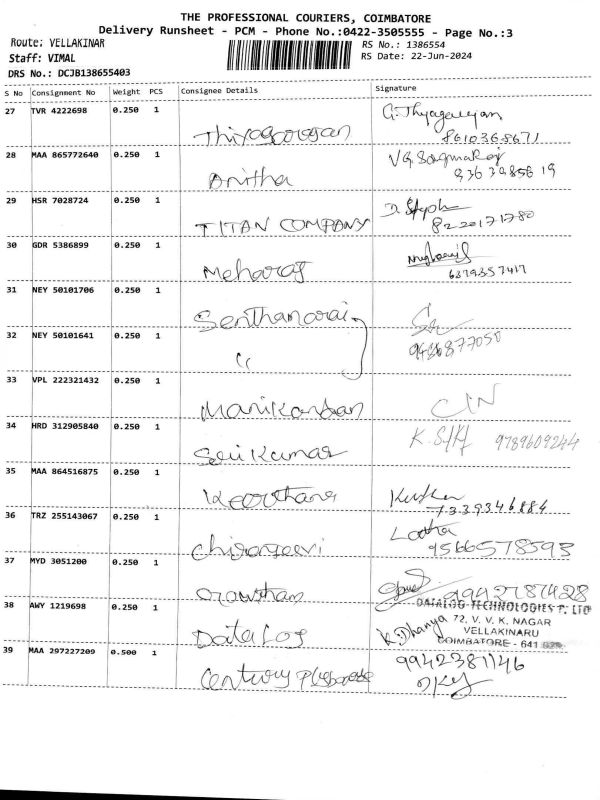 THE PROFESSIONAL COURIERS, COIMBATORE
Delivery Runsheet - PCM - Phone No.:0422-3505555 - Page No.:3
Route: VELLAKINAR
RS No.: 1386554
Staff: VIMAL
RS Date: 22-Jun-2024
DRS No.: DCJB138655403
S No Consignment No Weight PCS Consignee Details Signature
27 TVR 4222698 0.250 1
Thiyagarajan G. Thyagarajan
8610368671
28 MAA 865772640 0.250 1
Anitha
29 HSR 7028724 0.250 1
TITAN COMPANY
8220171780
30 GDR 5386899 0.250 1
Meharaj
6379357417
31 NEY 50101706 0.250 1
32 NEY 50101641 0.250 1
"
33 VPL 222321432 0.250 1
Manikandan
34 HRD 312905840 0.250 1
Selvi Kumar 9789609244
35 MAA 864516875 0.250 1
Keerthana
7339346884
36 TRZ 255143067 0.250 1
Chiranjeevi Latha
9566578593
37 MYD 3051200 0.250 1
Gowtham 9942787428
38 AWY 1219698 0.250 1
DATALOG TECHNOLOGIES P. LTD
72, V. V. K. NAGAR
VELLAKINARU
COIMBATORE - 641
Datalog K. Dhanya
39 MAA 297227209 0.500 1
9942381146
Century